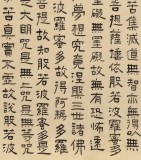 苦集滅道無智亦無得以
菩提薩埵依般若波羅蜜
礙無罣礙故無有恐怖遠
夢想究竟涅槃三世諸佛
波羅蜜多故得阿耨多羅
菩提故知般若波羅蜜多
大明咒是無上咒是無等
苦真實不虛故說般若波